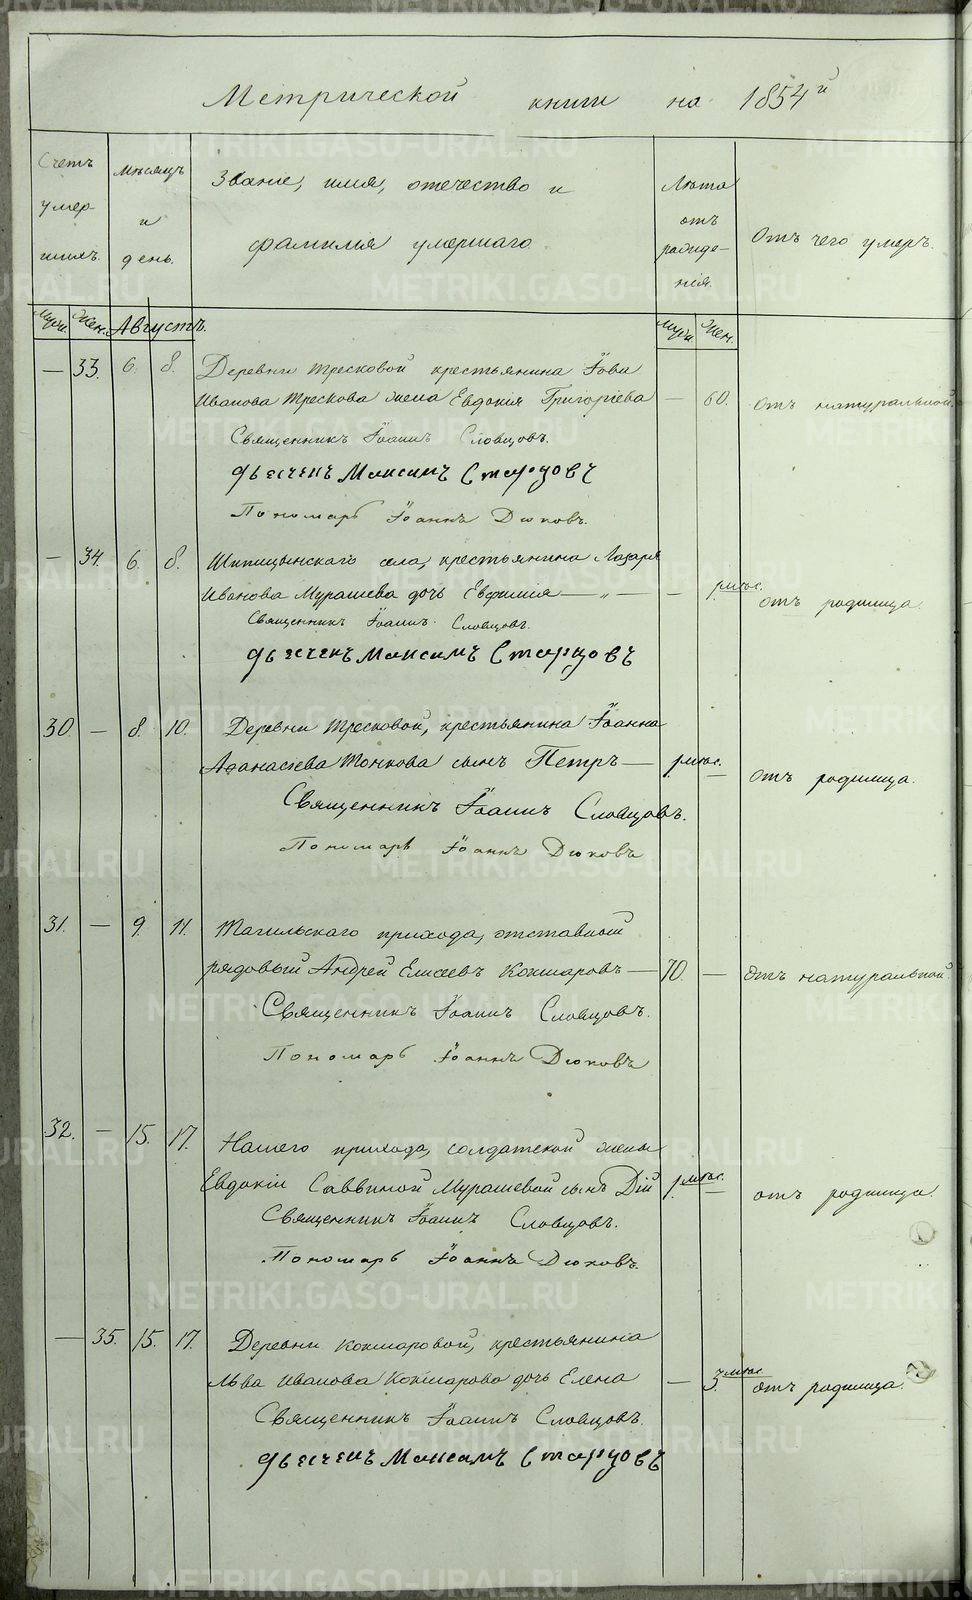 Метрической книги на 1854й
Счетъ умершихъ.
Мѣсяцъ и день.
Званіе, имя, отечество и
фамилія умершаго.
Лѣта отъ рожденія.
Отъ чего умеръ.
Муж. Жен. Августъ. Муж. Жен.
— 33. 6. 8. Деревни Тресковой крестьянина Іова
Иванова Трескова жена Евдокия Григоріева — 60. отъ натуральной.
Священникъ Іоаннъ Словцовъ.
Дьячекъ Максимъ Старцовъ
Пономарь Іоаннъ Дюковъ.
— 34. 6. 8. Шипицынскаго села, крестьянина Лазаря
Иванова Мурашева дочь Евфимія — „ — — мѣс. отъ родимца.
Священникъ Іоаннъ Словцовъ.
Дьячекъ Максимъ Старцовъ
30. — 8. 10. Деревни Тресковой, крестьянина Іоанна
Афанасіева Тонкова сынъ Петръ — мѣс. — отъ родимца.
Священникъ Іоаннъ Словцовъ.
Пономарь Іоаннъ Дюковъ
31. — 9. 11. Тагильскаго прихода, отставный
рядовый Андрей Елисеевъ Кокшаровъ — 70. — Отъ натуральной.
Священникъ Іоаннъ Словцовъ.
Пономарь Іоаннъ Дюковъ
32. — 15. 17. Нашего прихода, солдатской жены
Евдокіи Саввиной Мурашевой сынъ Дій мѣс. — отъ родимца.
Священникъ Іоаннъ Словцовъ.
Пономарь Іоаннъ Дюковъ.
— 35. 15. 17. Деревни Кокшаровой, крестьянина
Льва Иванова Кокшарова дочь Елена — 3. мѣс. отъ родимца.
Священникъ Іоаннъ Словцовъ.
Дьячекъ Максимъ Старцовъ
METRIKI.GASO-URAL.RU